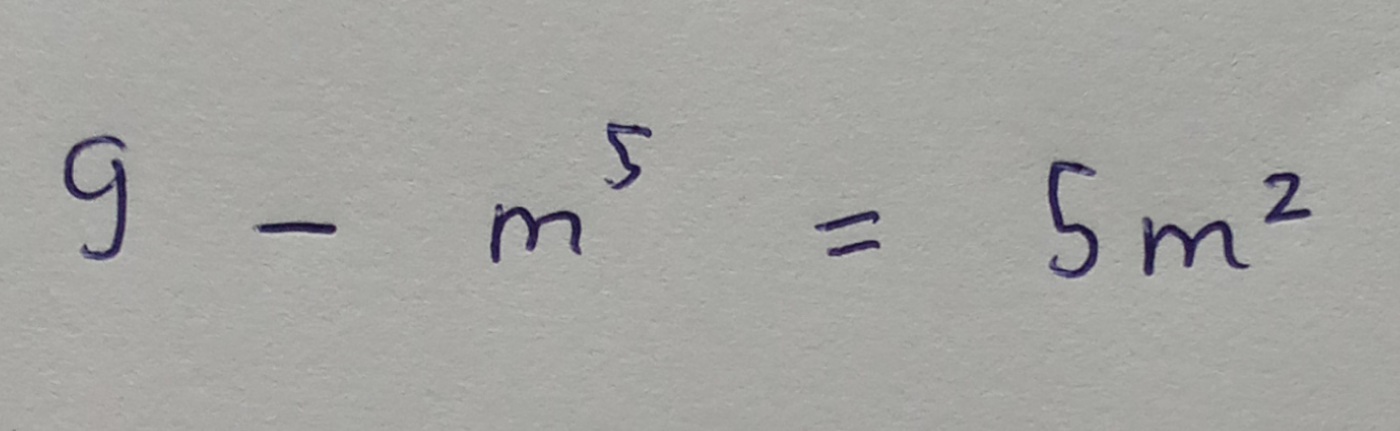 9 - m⁵ = 5m²